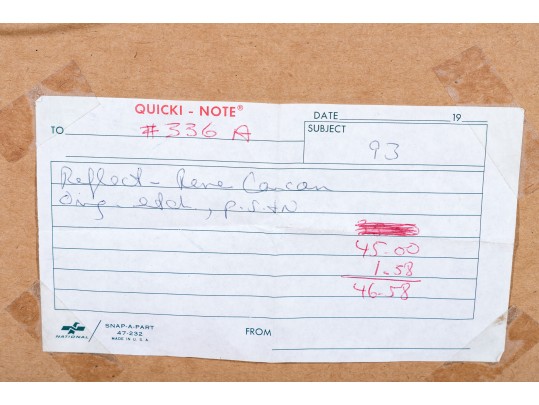 QUICKI - NOTE®
DATE 19
TO # 336 A
SUBJECT
93
Reflect - Rene Carcan
Orig. etch, p.s.+N
45.00
1.58
46.58
NATIONAL
SNAP-A-PART
47-232
MADE IN U. S. A.
FROM